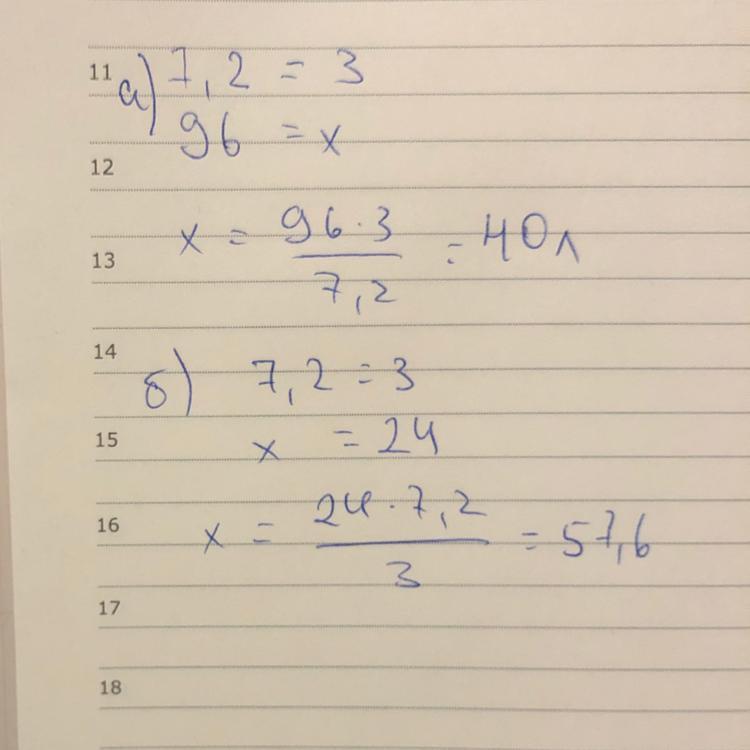 11
а) 7,2 = 3
96 = x
12
x = 96·3 / 7,2 = 40л
13
14
б) 7,2 = 3
15
x = 24
16
x = 24·7,2 / 3 = 57,6
17
18